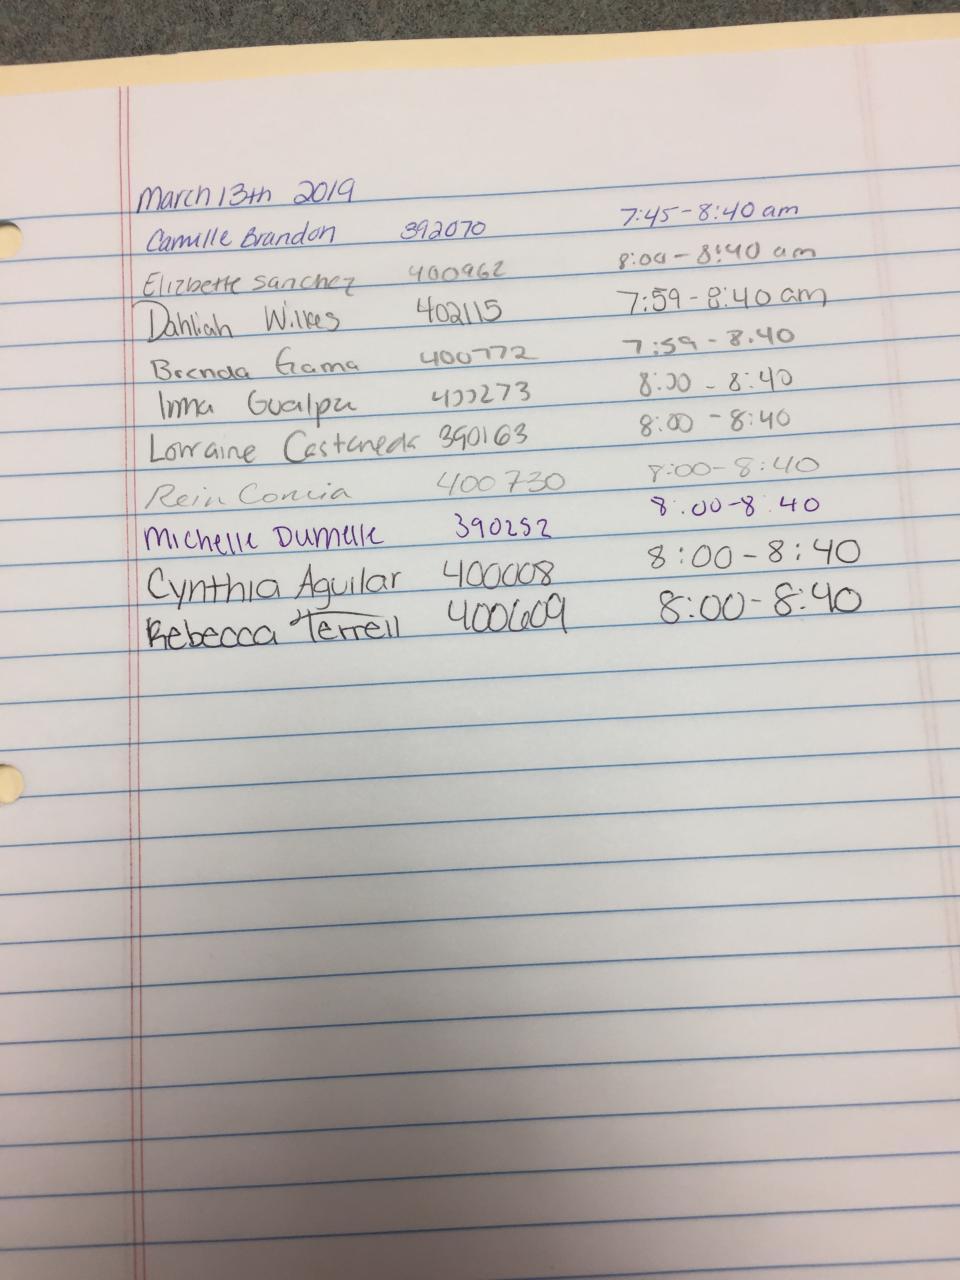 March 13th 2019
Camille Brandon 392070 7:45-8:40 am
Elizbette Sanchez 400962 8:00-8:40 am
Dahliah Wilkes 402115 7:59-8:40 am
Brenda Gama 400772 7:59-8:40
Irma 400273 8:00-8:40
Lorraine Castaneda 390163 8:00-8:40
400730 8:00-8:40
Michelle Dumelle 390252 8:00-8:40
Cynthia Aguilar 400008 8:00-8:40
Rebecca Terrell 400609 8:00-8:40